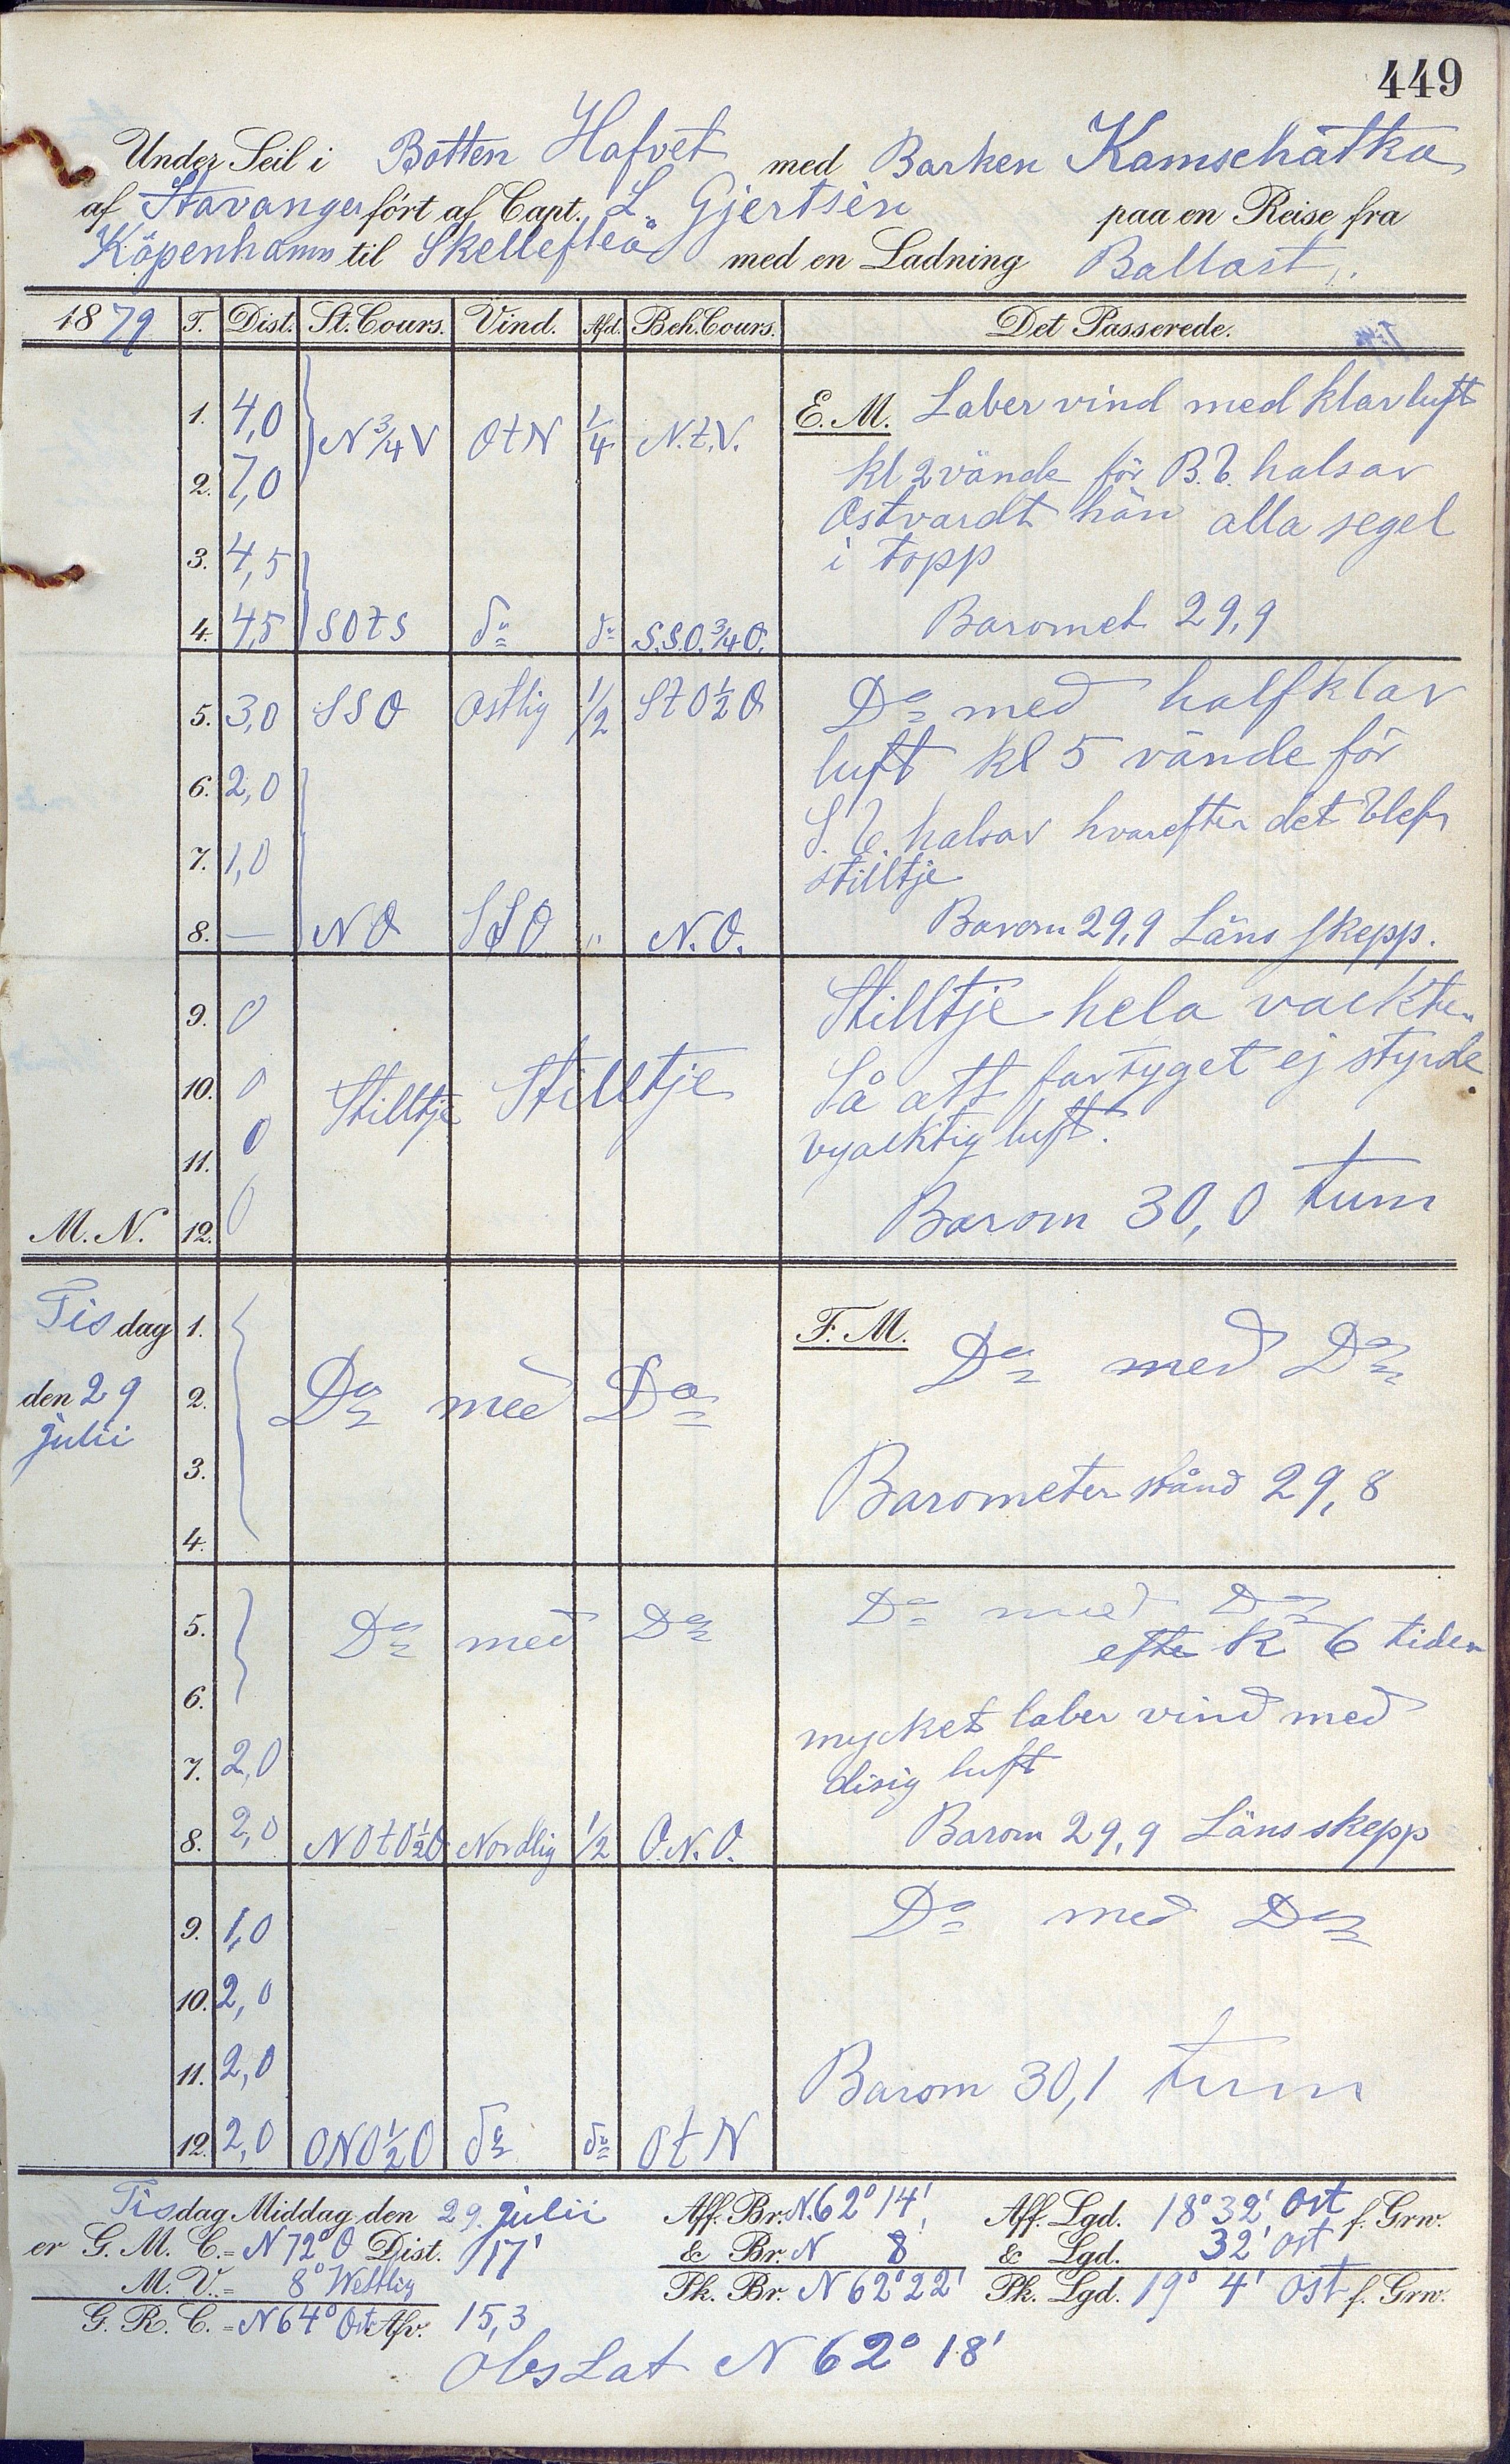 449
Under Seil i Botten Hafvet med Barken Kamschatka
af Stavanger fört af Capt. L. Gjertsen paa en Reise fra
Köpenhamn til Skellefteå med en Ladning Ballast.
1879 T. Dist. St. Cours. Vind. Afd. Beh. Cours. Det Passerede.
1. 4,0 N 3/4 V OtN 1/4 N.t.V. E. M. Laber vind med klar luft
2. 7,0 kl 2 vände för B.b. halsar
Ostvardt hän alla segel
3. 4,5 i topp
4. 4,5 SOtS do do S.S.O. 3/4 O. Baromet 29,9
5. 3,0 SSO Ostlig 1/2 StO 1/2 O Do med halfklar
luft kl 5 vände för
6. 2,0 S.b. halsar hvarefter det blef
7. 1,0 stilltje
8. — NO SSO " N.O. Barom 29,9 Läns skepp.
9. 0 Stilltje hela vackten
10. 0 Stilltje Stilltje Så att fartyget ej styrde
11. 0 luft.
M. N. 12. 0 Barom 30,0 tum
Tisdag 1. F. M. Do med Do
den 29 2. Do med Do
julii
3. Barometerstånd 29,8
4.
5. Do med Do Do med Do
efter k 6 tiden
6. mycket laber vind med
7. 2,0 disig luft
8. 2,0 NOtO 1/2 O Nordlig 1/2 O.N.O. Barom 29,9 Läns skepp
9. 1,0 Do med Do
10. 2,0
11. 2,0 Barom 30,1 tum
12. 2,0 ONO 1/2 O do do OtN
Tisdag Middag den 29. julii Aff. Br. N. 62° 14', Aff. Lgd. 18° 32' Ost f. Grw.
er G. M. C. = N 72° O Dist. 17' & Br. N 8 & Lgd. 32' Ost
M. V. = 8° Westlig Pk. Br. N 62° 22' Pk. Lgd. 19° 4' Ost f. Grw.
G. R. C. = N 64° Ost Afv. 15,3
Obs Lat N 62° 18'